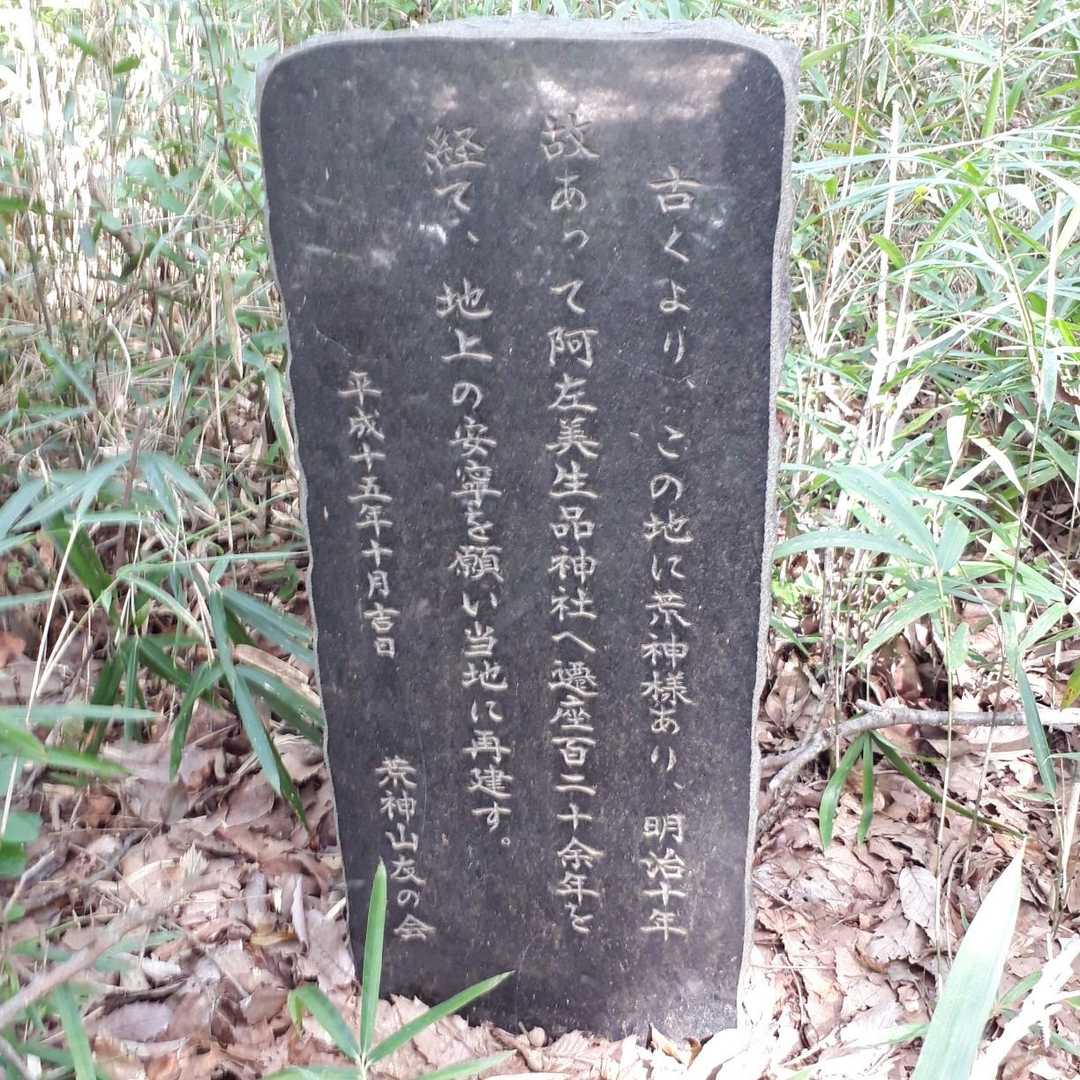 古くより、この地に荒神様あり、明治十年
故あって阿左美生品神社へ遷座百二十余年を
経て、地上の安寧を願い当地に再建す。
平成十五年十月吉日
荒神山友の会